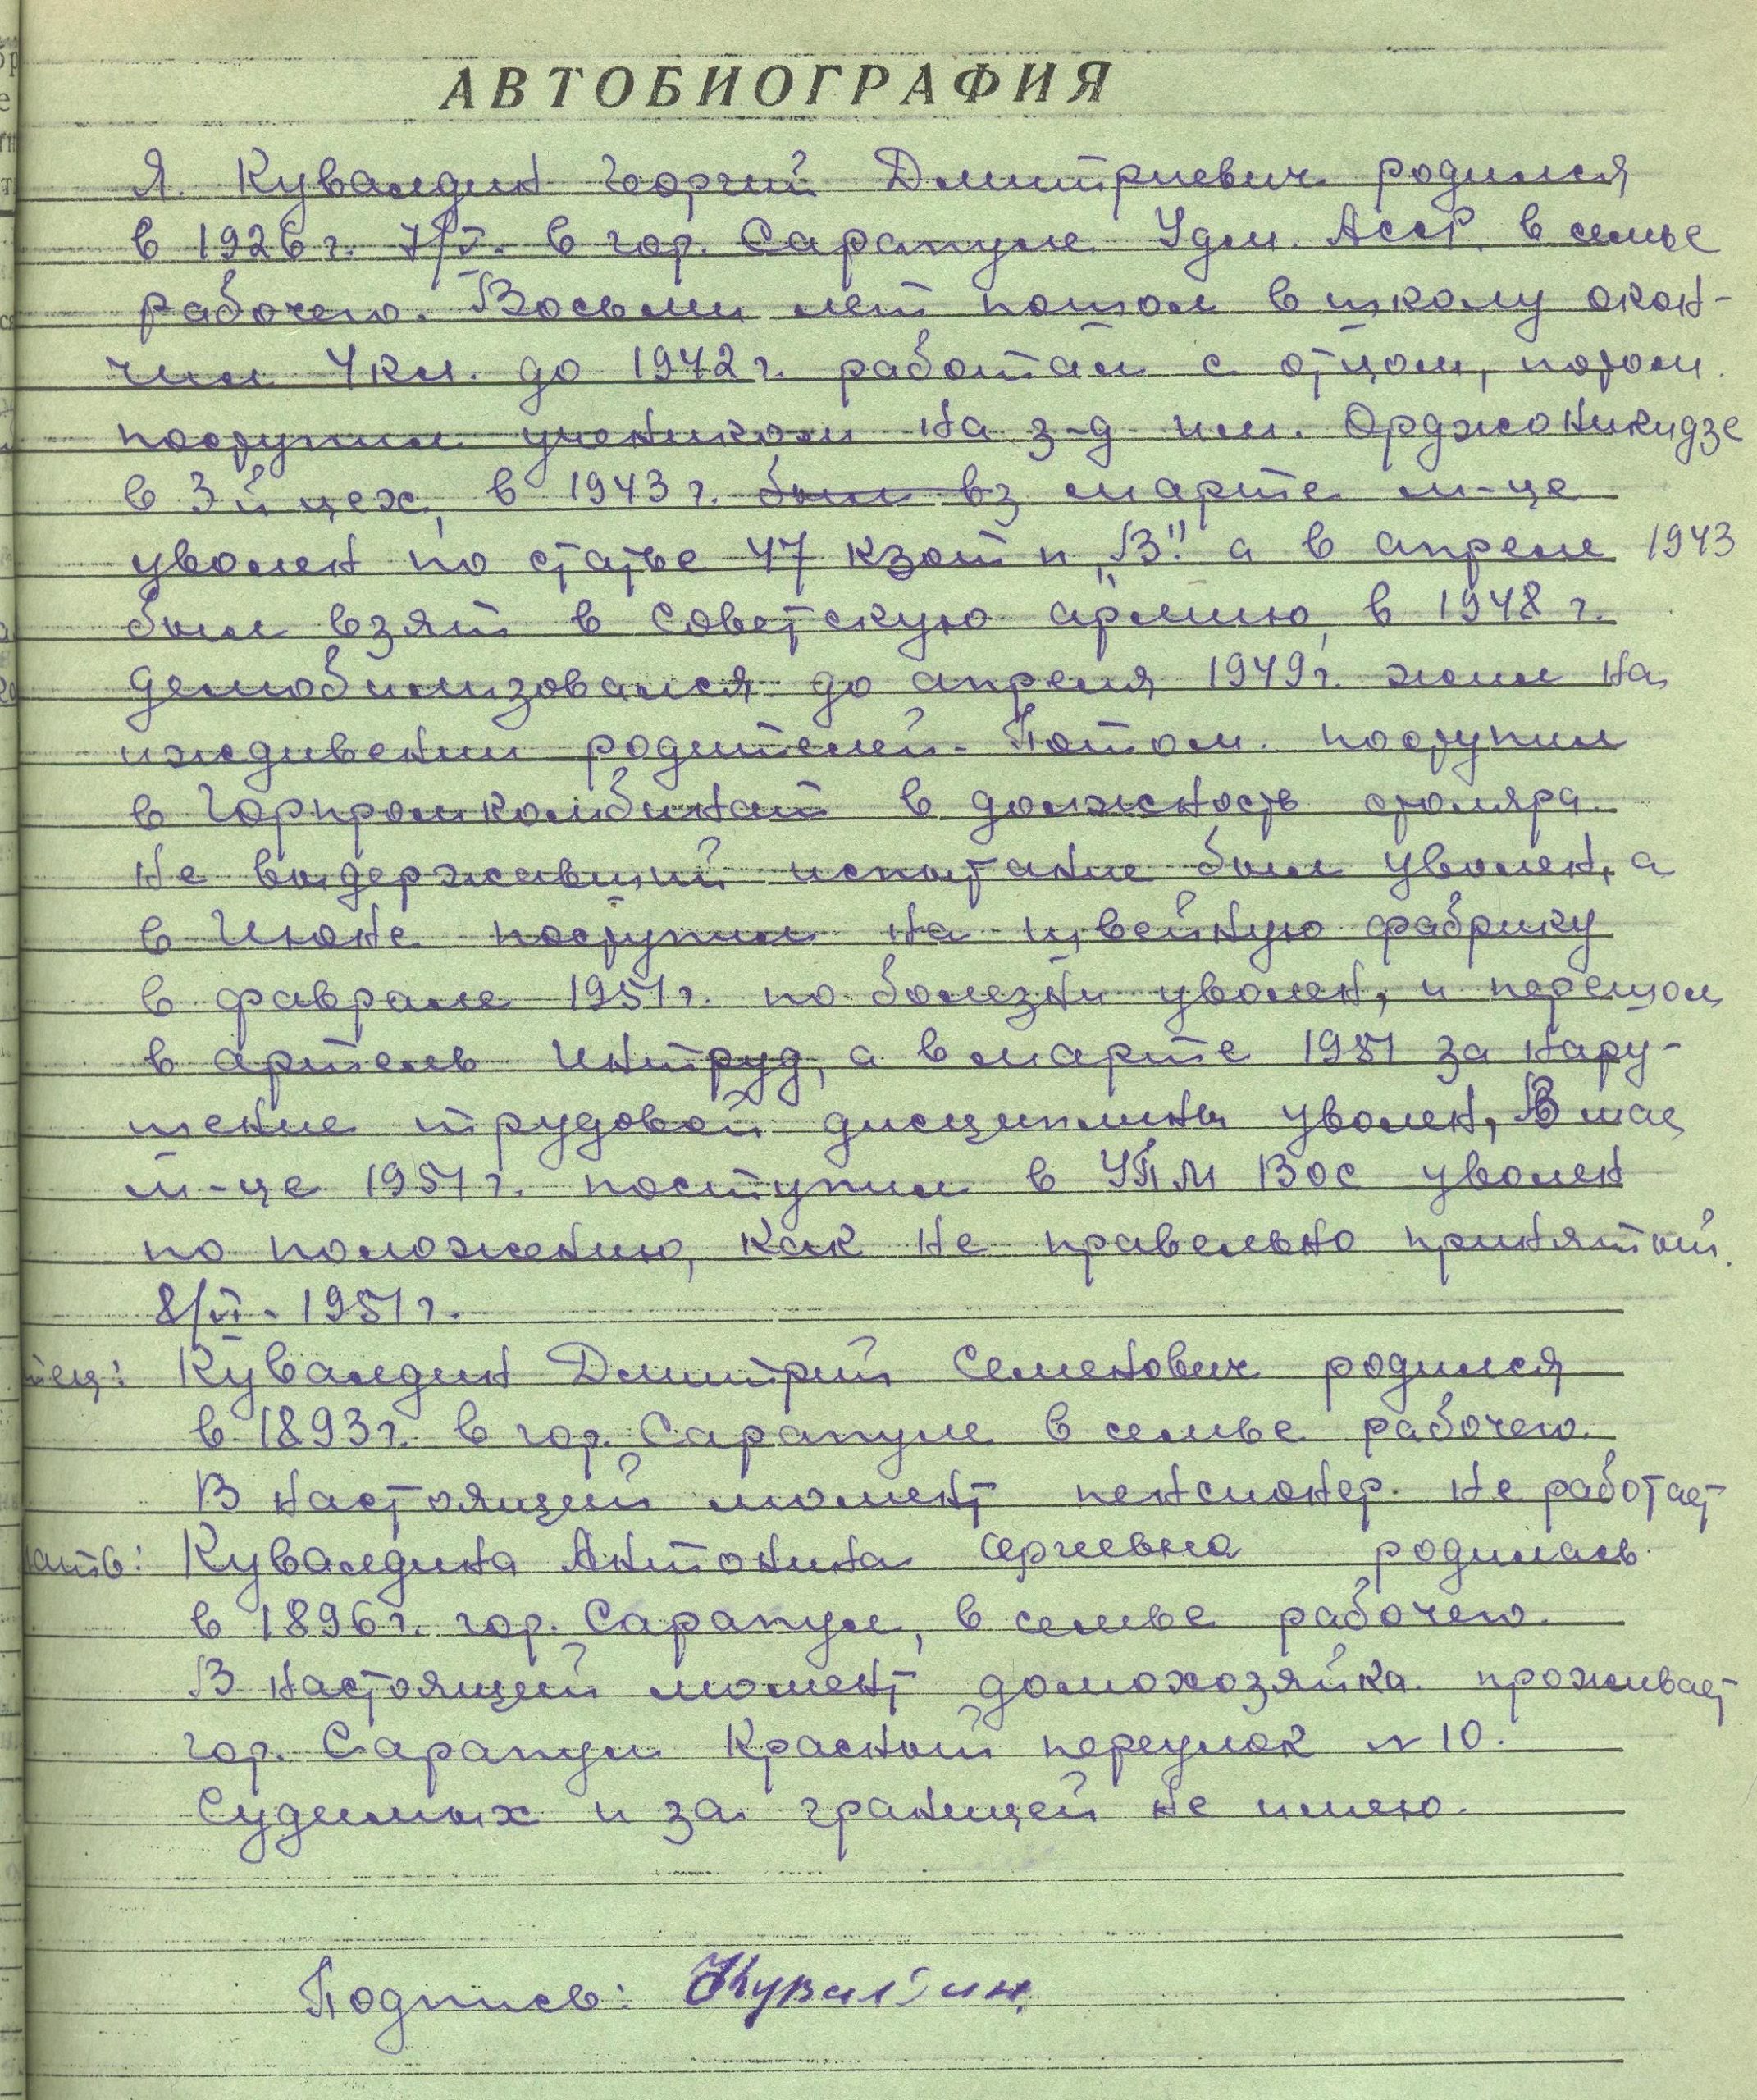 АВТОБИОГРАФИЯ
Я. Кувалдин Георгий Дмитриевич родился
в 1926 г. 7/V. в гор. Сарапуле Удм. АССР. в семье
рабочего. Восьми лет пошол в школу окон-
чил 4 кл. до 1942 г. работал с отцом, потом
поступил учеником на з-д им. Орджоникидзе
в 3й цех, в 1943 г. был вз марте м-це
уволен по статье 47 кзот п „В" а в апреле 1943
был взят в Советскую армию, в 1948 г.
демобилизовался до апреля 1949 г. жил на
иждивении родителей. Потом поступил
в Горпромкомбинат в должность столяра.
Не выдержавший испытание был уволен, а
в Июне поступил на швейную фабрику
в феврале 1951 г. по болезни уволен, и перешол
в артель Интруд, а в марте 1951 за нару-
шение трудовой дисциплины уволен, В мае
м-це 1951 г. поступил в УПМ ВОС уволен
по положению, как не правельно принятый.
8/VI. 1951 г.
тец: Кувалдин Дмитрий Семенович родился
в 1893 г. в гор. Сарапуле в семье рабочего.
В настоящей момент пенсионер. Не работает
мать: Кувалдина Антонина Сергеевна родилась
в 1896 г. гор. Сарапул, в семье рабочего.
В настоящей момент домохозяйка. проживает
гор. Сарапул Красный переулок № 10.
Судимых и за границей не имею.
Подпись: Кувалдин